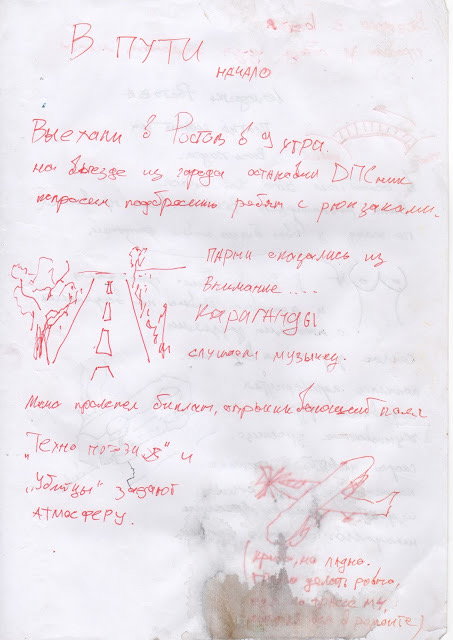 В ПУТИ
НАЧАЛО
Выехали в Ростов в 9 утра.
на выезде из города остановил ДПСник
попросил подбросить ребят с рюкзаками.
ПАРНИ оказались из
Внимание ....
КАРАГАНДЫ
слушаем музычку.
Мимо пролетел биплан, опрыскивающий поля
„Техно
и
„Убийцы" задают
АТМОСФЕРУ.
(криво, но ладно.
делать ровно,
трассе М4,
о ремонте)